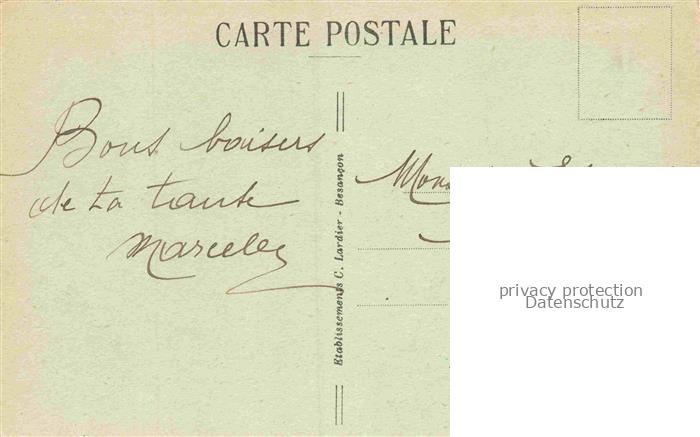 CARTE POSTALE
Bons baisers
de ta tante
Etablissements C. Lardier - Besançon
privacy protection
Datenschutz